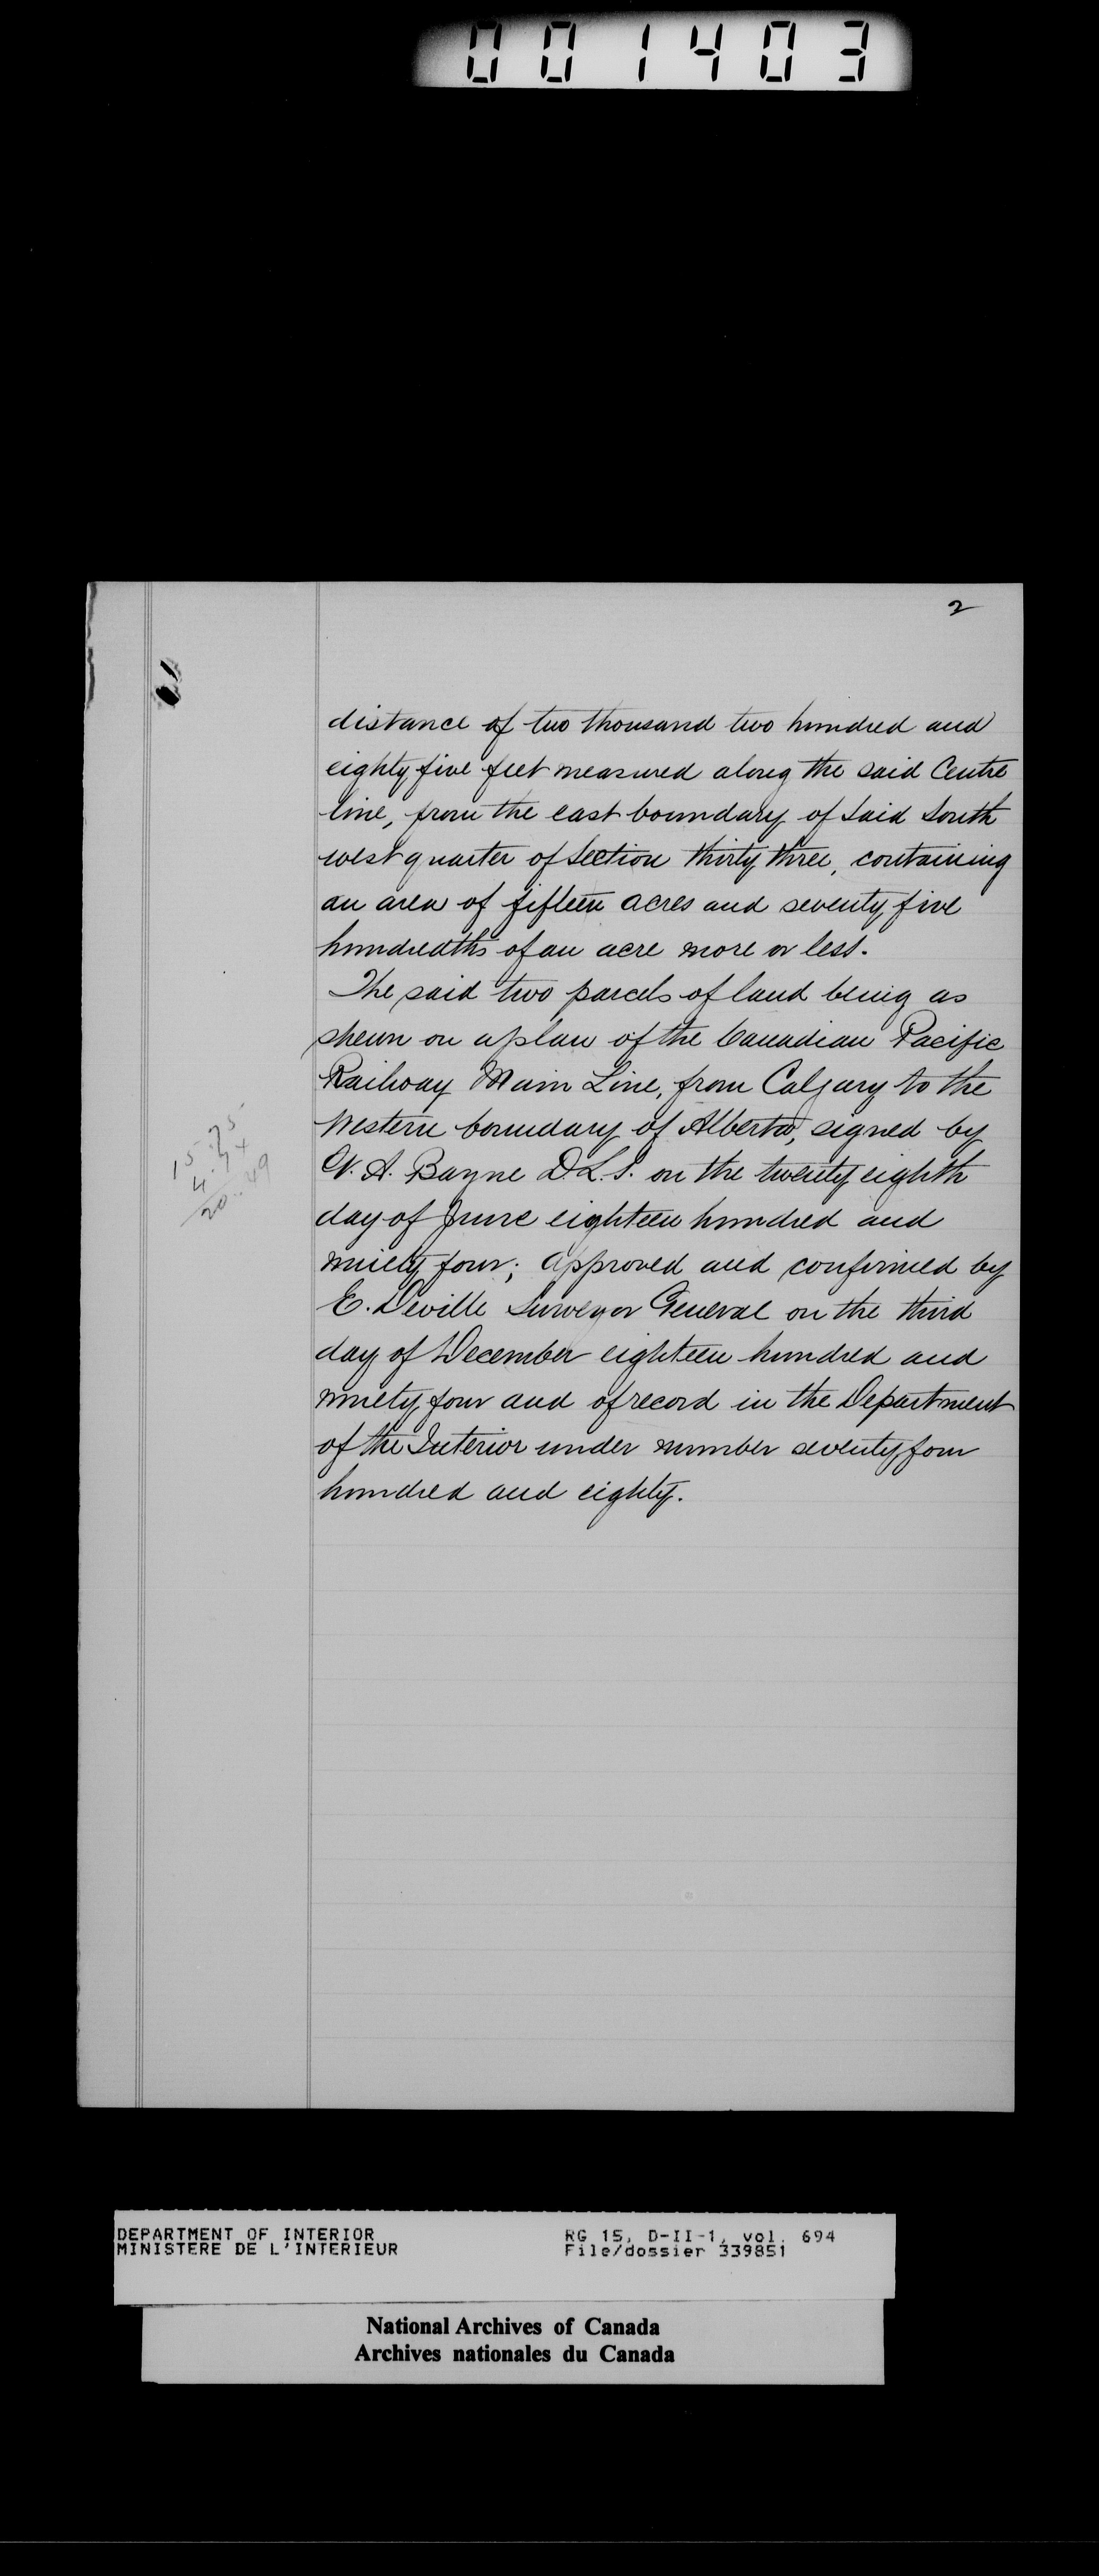 001403
2
distance of two thousand two hundred and
eighty five feet measured along the said Centre
line, from the east boundary of said South
west quarter of Section thirty three, containing
an area of fifteen acres and seventy five
hundredths of an acre more or less.
The said two parcels of land being as
shewn on a plan of the Canadian Pacific
Railway Main Line, from Calgary to the
Western boundary of Alberta, signed by
A. Bayne D.L.S. on the twenty eighth
day of June eighteen hundred and
ninety four; approved and confirmed by
E. Deville Surveyor General on the third
day of December eighteen hundred and
ninety four and of record in the Department
of the Interior under number seventy four
hundred and eighty.
15.75
4.74
20.49
DEPARTMENT OF INTERIOR
MINISTERE DE L'INTERIEUR
RG 15, D-II-1, vol. 694
File/dossier 339851
National Archives of Canada
Archives nationales du Canada